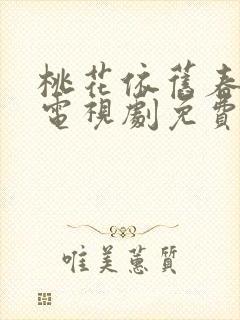 桃花依舊春
電視劇免費
唯美蕙質